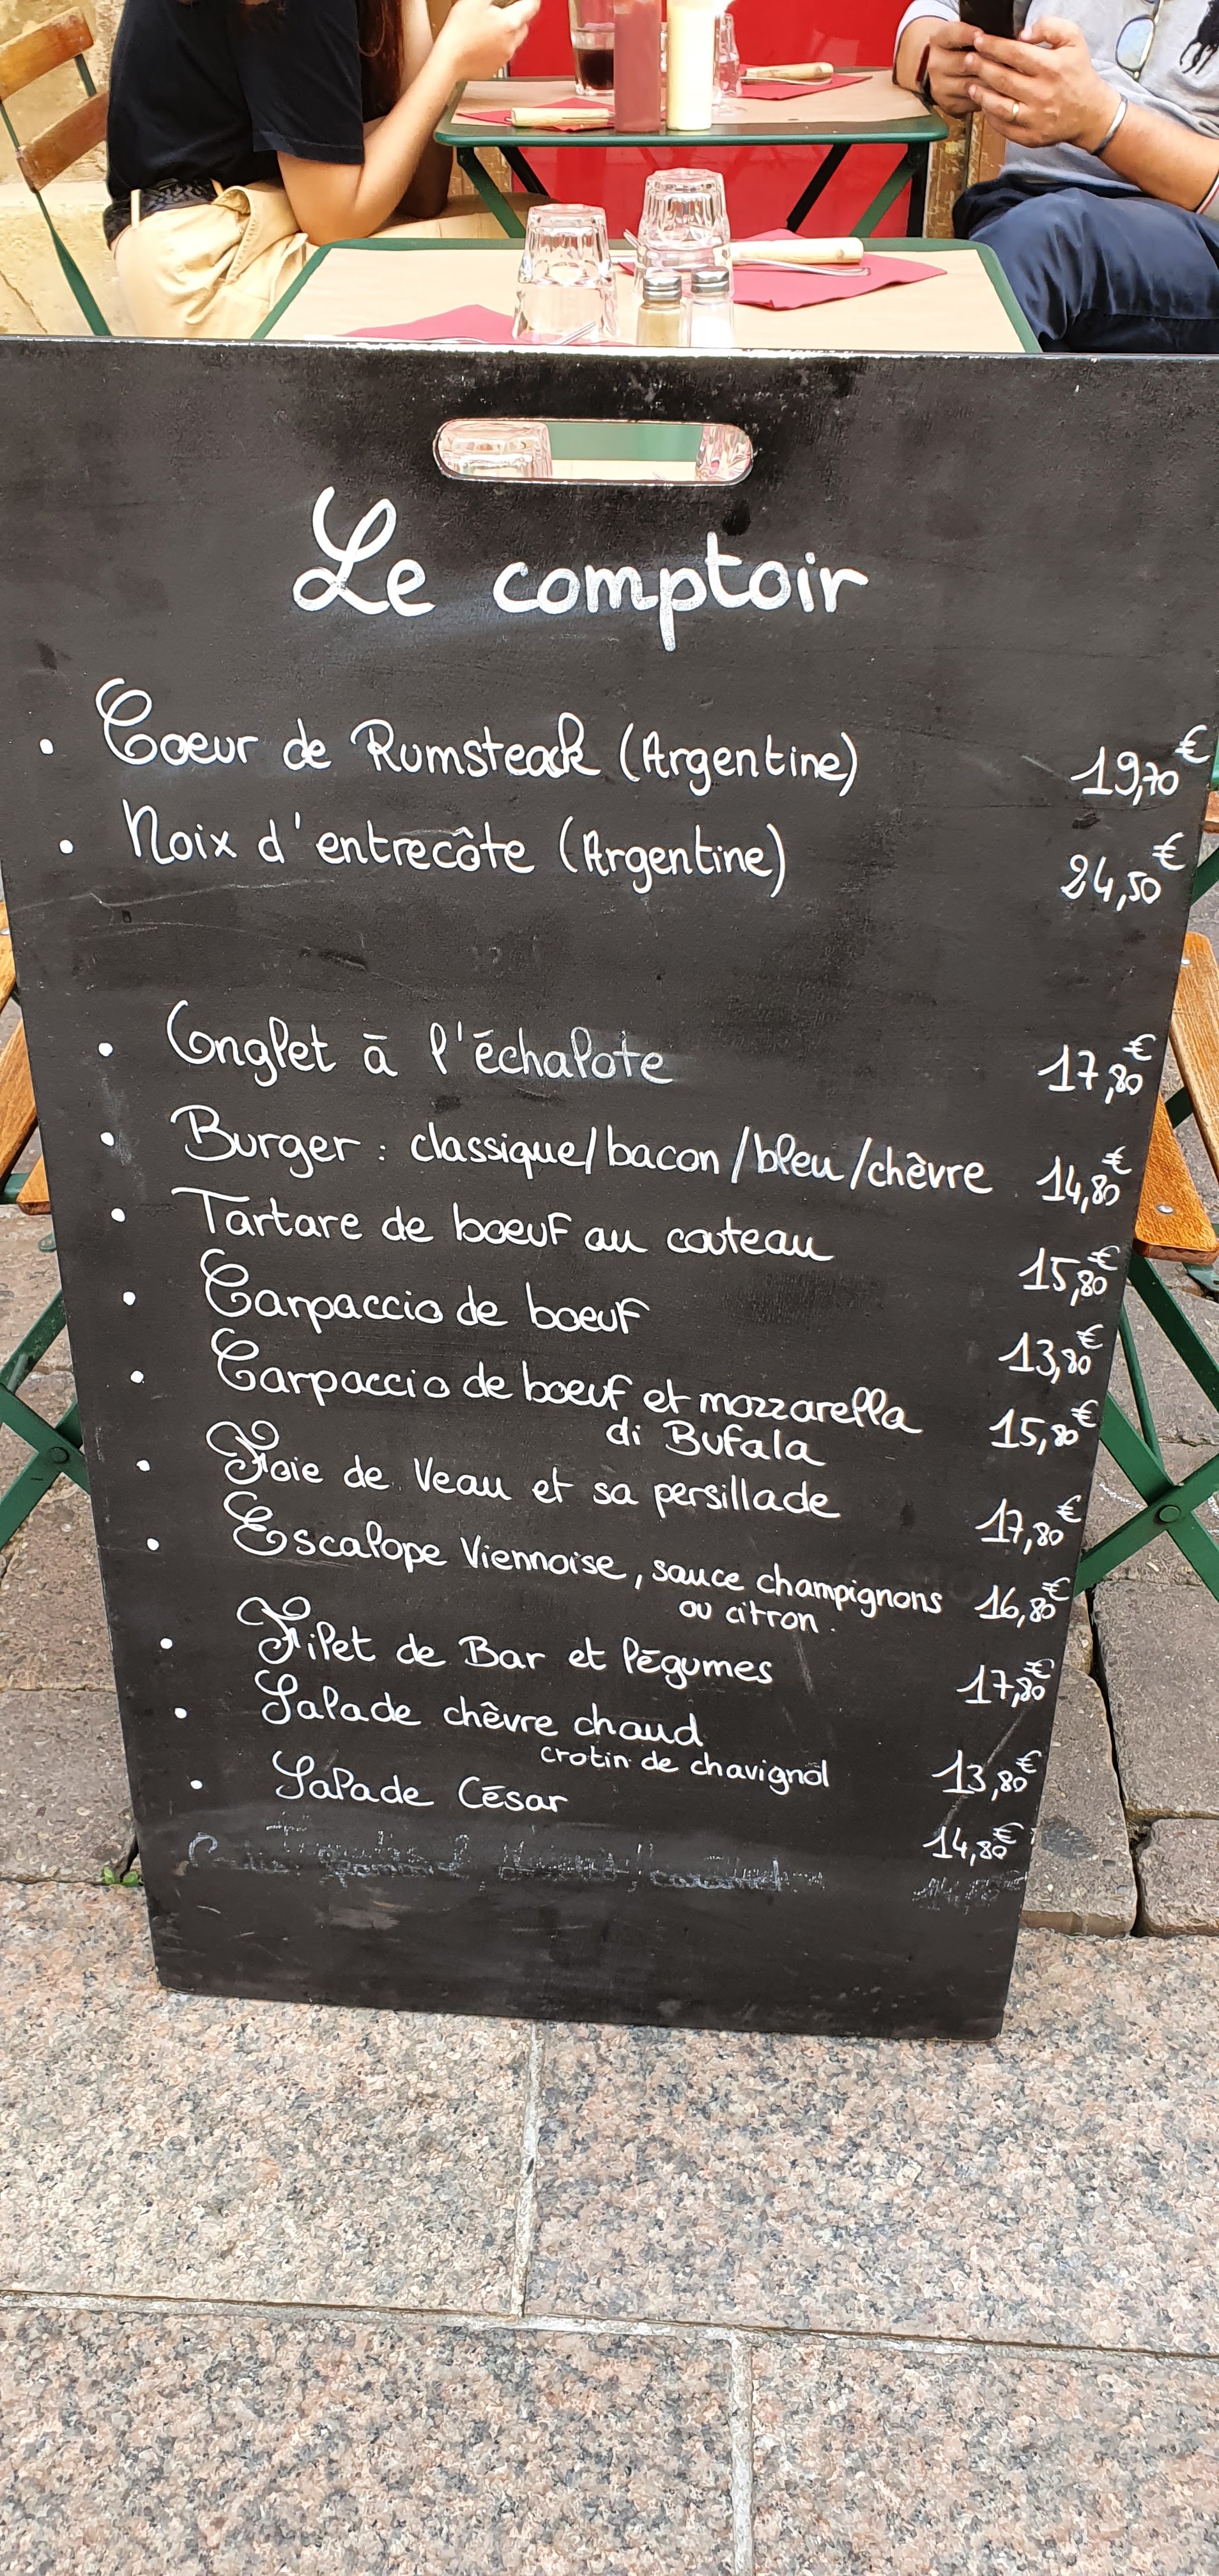 Le comptoir
• Coeur de Rumsteack (Argentine) 19,70€
• Noix d'entrecôte (Argentine) 24,50€
• Onglet à l'échalote 17,80€
• Burger : classique/bacon/bleu/chèvre 14,80€
• Tartare de boeuf au couteau 15,80€
• Carpaccio de boeuf 13,80€
• Carpaccio de boeuf et mozzarella 15,80€
di Bufala
• Foie de Veau et sa persillade 17,80€
• Escalope Viennoise, sauce champignons 16,80€
ou citron.
• Filet de Bar et légumes 17,80€
• Salade chèvre chaud 13,80€
crotin de chavignol
• Salade César 14,80€